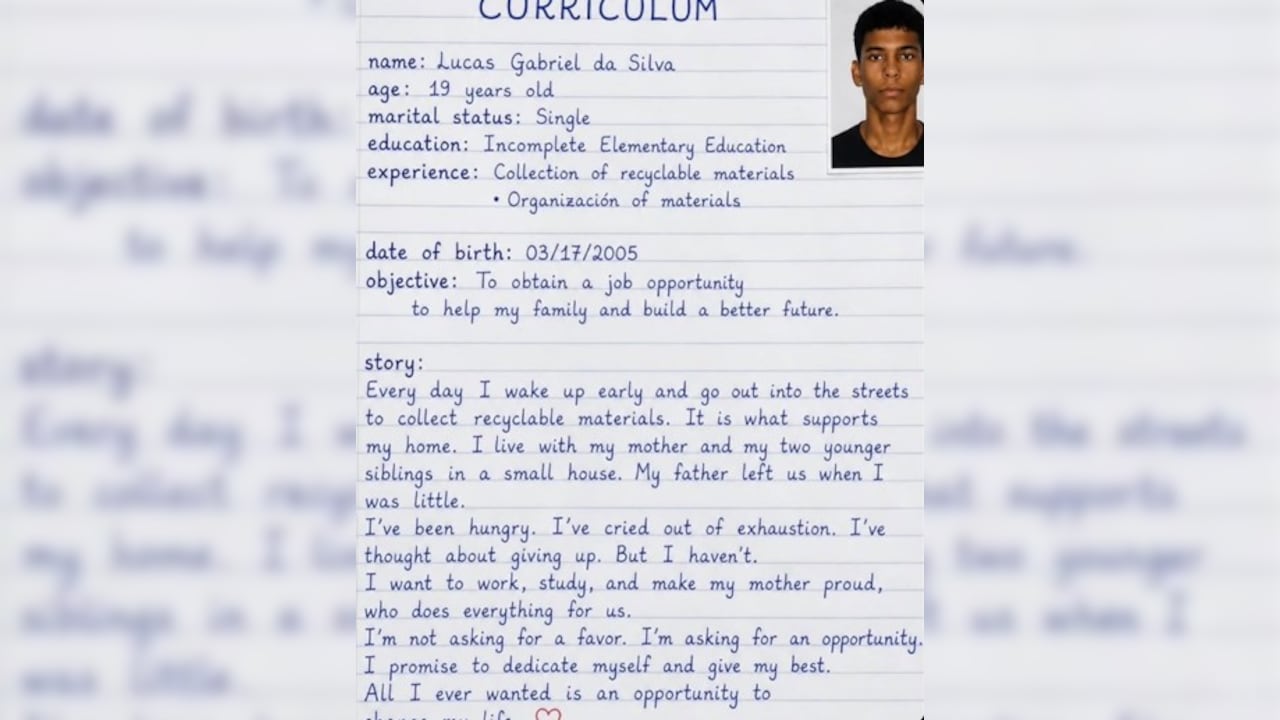 CURRICULUM
name: Lucas Gabriel da Silva
age: 19 years old
marital status: Single
education: Incomplete Elementary Education
experience: Collection of recyclable materials
• Organización of materials
date of birth: 03/17/2005
objective: To obtain a job opportunity
to help my family and build a better future.
story:
Every day I wake up early and go out into the streets
to collect recyclable materials. It is what supports
my home. I live with my mother and my two younger
siblings in a small house. My father left us when I
was little.
I've been hungry. I've cried out of exhaustion. I've
thought about giving up. But I haven't.
I want to work, study, and make my mother proud,
who does everything for us.
I'm not asking for a favor. I'm asking for an opportunity.
I promise to dedicate myself and give my best.
All I ever wanted is an opportunity to
change my life.